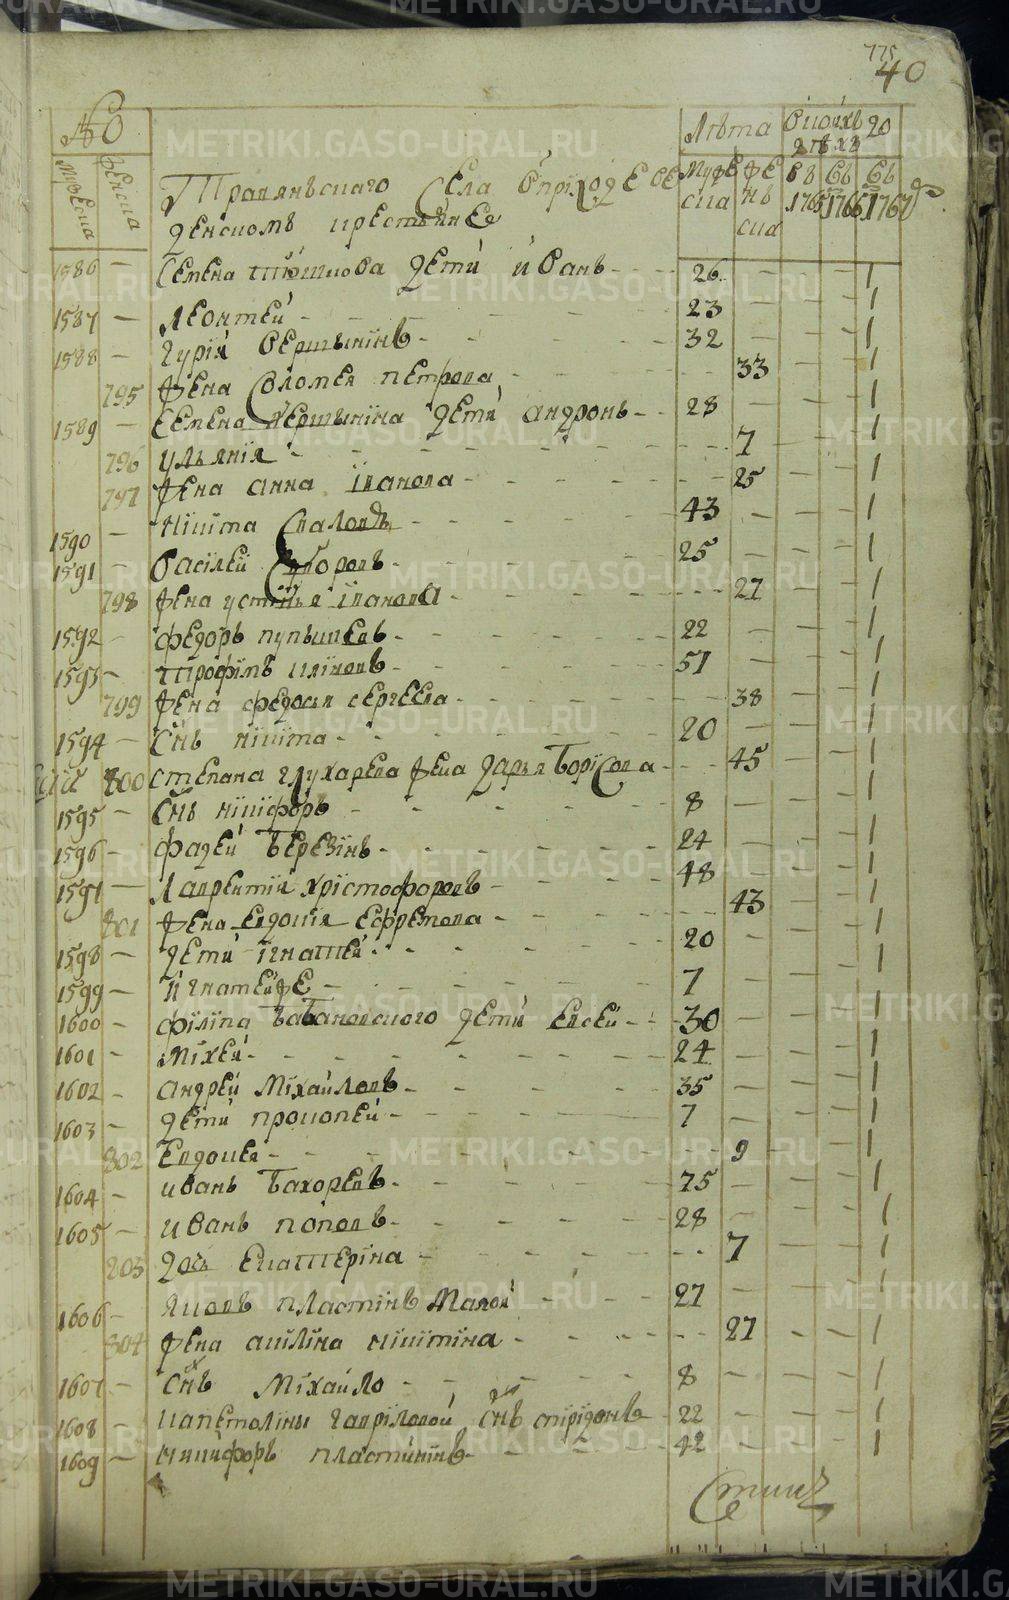 775
40
№
Мужеска
Женска
Лѣта
Мужеска
Женска
1765
1766
1767
Травянъскаго Села
крестьяне
1586 — Семена дети Иванъ - - - 26 — — — 1
1587 — Леонтей - - - 23 — — — 1
1588 — Гурій Вершынінъ - - - 32 — — — 1
795 жена Соломея петрова - - - 33 — — 1
1589 — Семена Вершыніна дети андронъ - - 28 — — — 1
796 ульянія - - - 7 — — 1
797 жена анна Іванова - - - 25 — — 1
1590 — Нікіта - - - 43 — — — 1
1591 — Васілей Суборовъ - - - 25 — — — 1
798 жена устинья Іванова - - - 27 — — 1
1592 — Федоръ пупышевъ - - - 22 — — — 1
1593 — Трофімъ клімовъ - - - 51 — — — 1
799 жена федосья сергеева - - - 38 — — 1
1594 — Снъ нікіта - - - 20 — — — 1
800 степана глухарева жена дарья Борісова - - - 45 — — 1
1595 — Снъ нікіфоръ - - - 8 — — — 1
1596 — фадей Березінъ - - - 24 — — — 1
1597 — Лаврентій хрістофоровъ - - - 48 — — — 1
801 жена Евдокія Ефремова - - - 43 — — 1
1598 — дети Ігнатей - - - 20 — — — 1
1599 — Игнатейже - - - 7 — — — 1
1600 — філіпа Бабановского дети Евсей - - 30 — — — 1
1601 — Міхей - - - 24 — — — 1
1602 — андрей Міхайловъ - - - 35 — — — 1
1603 — дети прокопей - - - 7 — — — 1
802 Евдокея - - - 9 — — 1
1604 — иванъ Бахоревъ - - - 75 — — — 1
1605 — иванъ поповъ - - - 28 — — — 1
803 дочь Екатеріна - - - 7 — — 1
1606 — яковъ пластінінъ Малой - - - 27 — — — 1
804 жена акіліна нікітіна - - - 27 — — 1
1607 — Снъ Міхайло - - - 8 — — — 1
1608 — капетоліны гавріловой Снъ спірідонъ - 22 — — — 1
1609 — Никифоръ пластінінъ - - - 42 — — — 1
METRIKI.GASO-URAL.RU